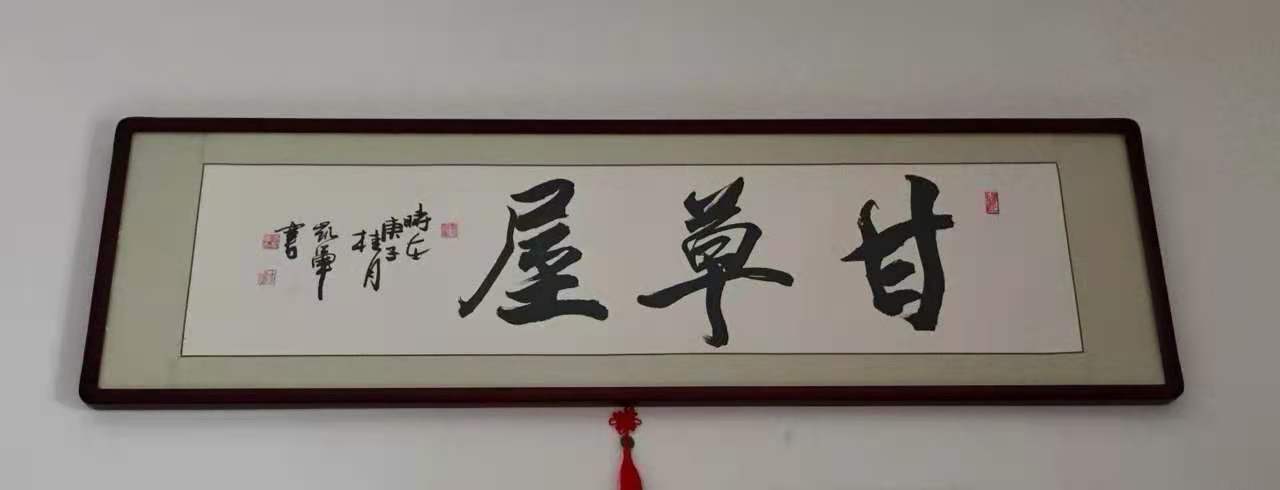 甘草屋
時在
庚子
桂月
凯军
書